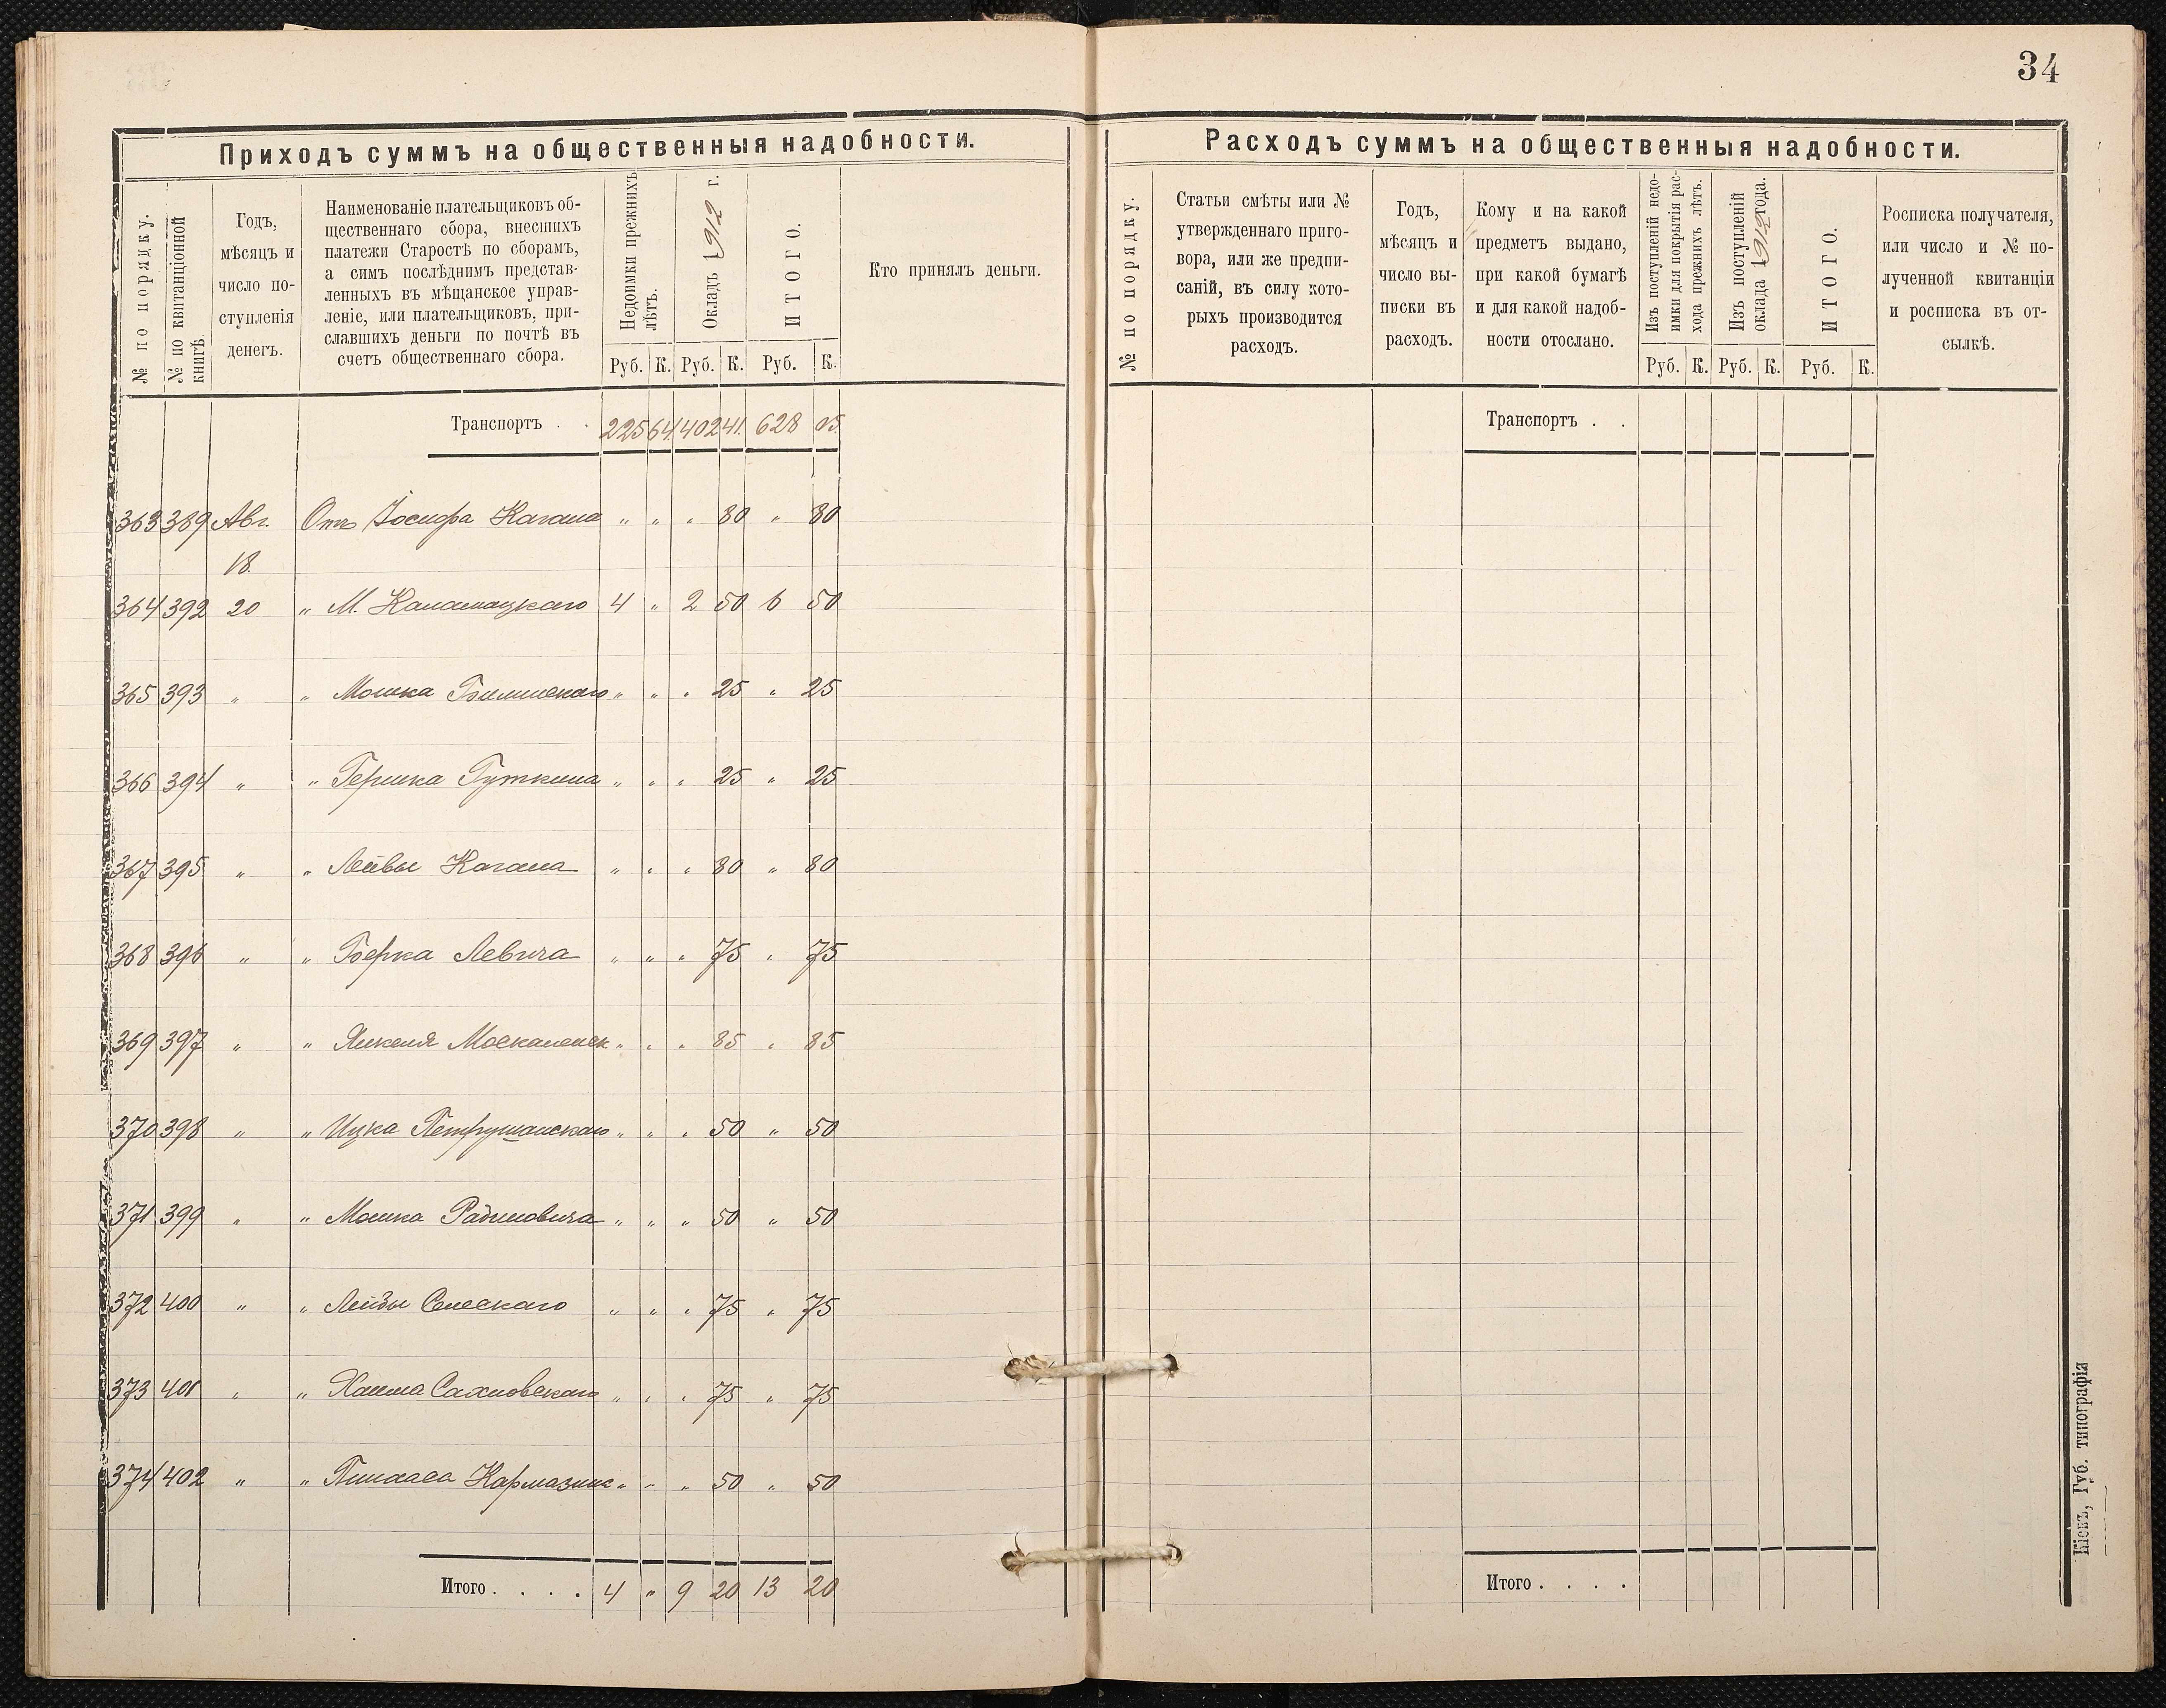 34
Приходъ суммъ на общественныя надобности.
№ по порядку.
№ по квитанціонной книгѣ
Годъ,
мѣсяцъ и
число по-
ступленія
денегъ.
Наименованіе плательщиковъ об-
щественнаго сбора, внесшихъ
платежи Старостѣ по сборамъ,
а симъ послѣднимъ представ-
ленныхъ въ мѣщанское управ-
леніе, или плательщиковъ, при-
славшихъ деньги по почтѣ въ
счетъ общественнаго сбора.
Недоимки прежнихъ лѣтъ.
Окладъ 1912 г.
ИТОГО.
Руб. К. Руб. К. Руб. К.
Кто принялъ деньги.
Транспортъ . . 225 64 402 41 628 05
363 389 Авг. Отъ Іосифа Кагана " " " 80 " 80
18.
364 392 20 " М. 4 " 2 50 6 50
365 393 " " Мошка " " " 25 " 25
366 394 " " Гершка Гуткина " " " 25 " 25
367 395 " " Лейвы Кагана " " " 80 " 80
368 396 " " Берка Левича " " " 75 " 75
369 397 " " Янкеля " " " 85 " 85
370 398 " " Ицка Петрушанскаго " " " 50 " 50
371 399 " " Мошка Радиновича " " " 50 " 50
372 400 " " " " " 75 " 75
373 401 " " Хаима Сахновскаго " " " 75 " 75
374 402 " " Пинхаса Кармазин " " " 50 " 50
Итого . . . . 4 " 9 20 13 20
Расходъ суммъ на общественныя надобности.
№ по порядку.
Статьи смѣты или №
утвержденнаго приго-
вора, или же предпи-
саній, въ силу кото-
рыхъ производится
расходъ.
Годъ,
мѣсяцъ и
число вы-
писки въ
расходъ.
Кому и на какой
предметъ выдано,
при какой бумагѣ
и для какой надоб-
ности отослано.
Изъ поступленій недо-
имки для покрытія рас-
хода прежнихъ лѣтъ.
Изъ поступленій
оклада 1912 года.
ИТОГО.
Руб. К. Руб. К. Руб. К.
Росписка получателя,
или число и № по-
лученной квитанціи
и росписка въ от-
сылкѣ.
Транспортъ . .
Итого . . . .
Кіевъ, Губ. типографія